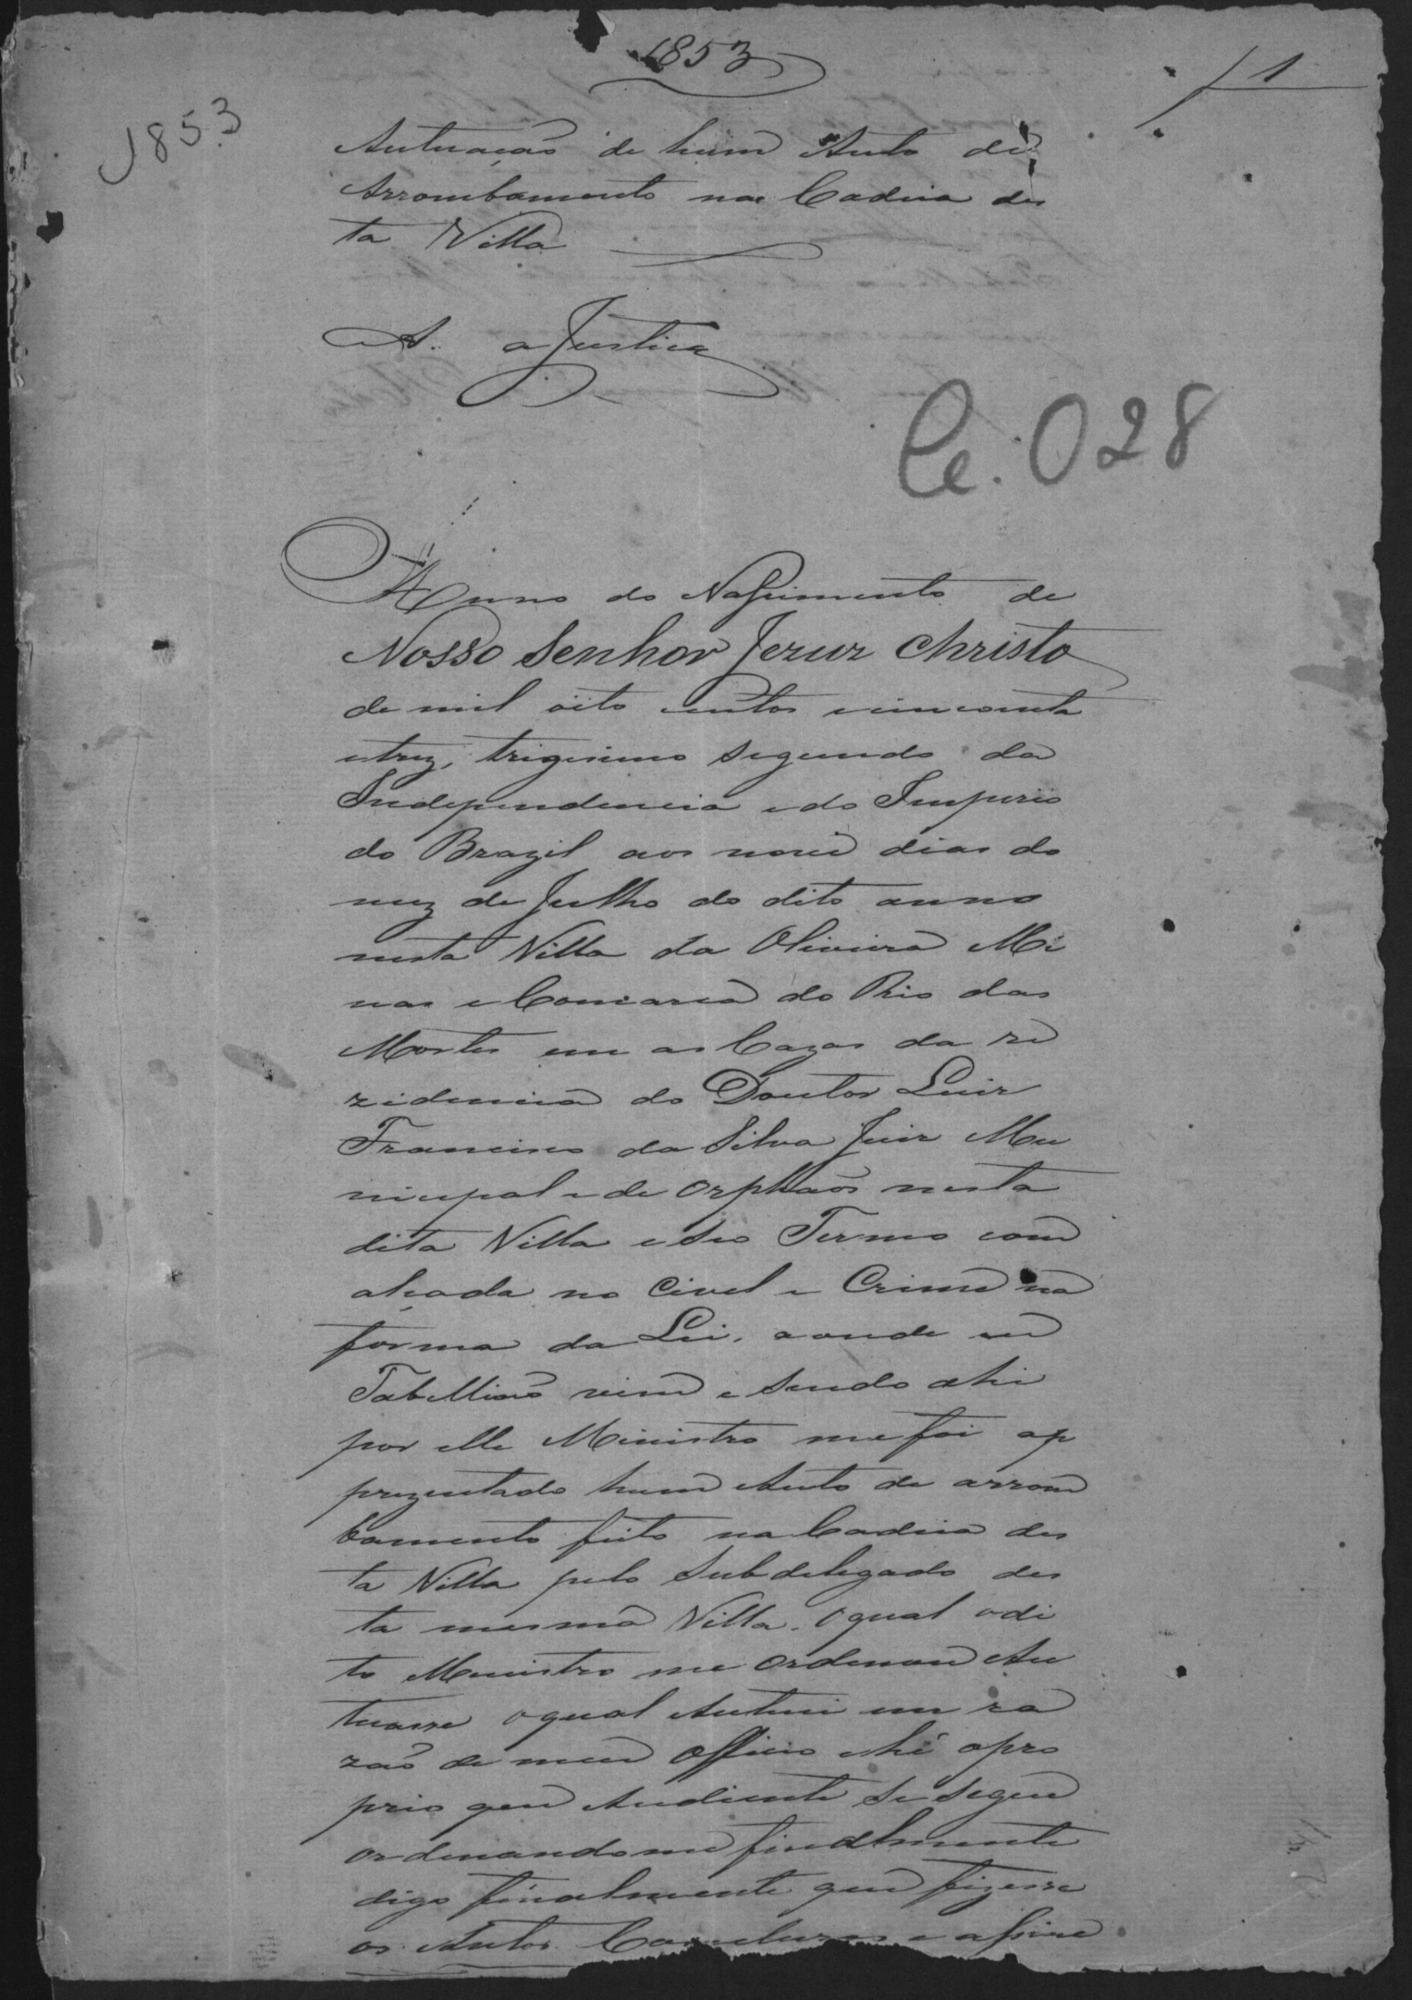 1853
1
1853
Autuação de hum Auto de
Arrombamento na Cadeia des
ta Villa
A. a Justiça
Ce. 028
Anno do Nascimento de
Nosso Senhor Jezuz Christo
de mil oito centos e cincoenta
e trez, trigesimo segundo da
Independencia e do Imperio
do Brazil aos nove dias do
mez de Julho do dito anno
nesta Villa da Oliveira Mi
nas e Comarca do Rio das
Mortes em as Cazas da re
zidencia do Doutor Luiz
Francisco da Silva Juiz Mu
nicipal e de Orphãos nesta
dita Villa e seo Termo com
alçada no Civel e Crime na
forma da Lei, aonde eu
Tabellião vim e sendo ahi
por elle Ministro me foi ap
prezentado hum Auto de arrom
bamento feito na Cadeia des
ta Villa pelo Subdelegado des
ta mesma Villa. o qual o di
to Ministro me ordenou Au
tuasse o qual Autuei em ra
zão de meu Officio e hé o pro
prio que Audiente se segue
ordenandome finalmente
digo finalmente que fizesse
os Autos Concluzos e assine